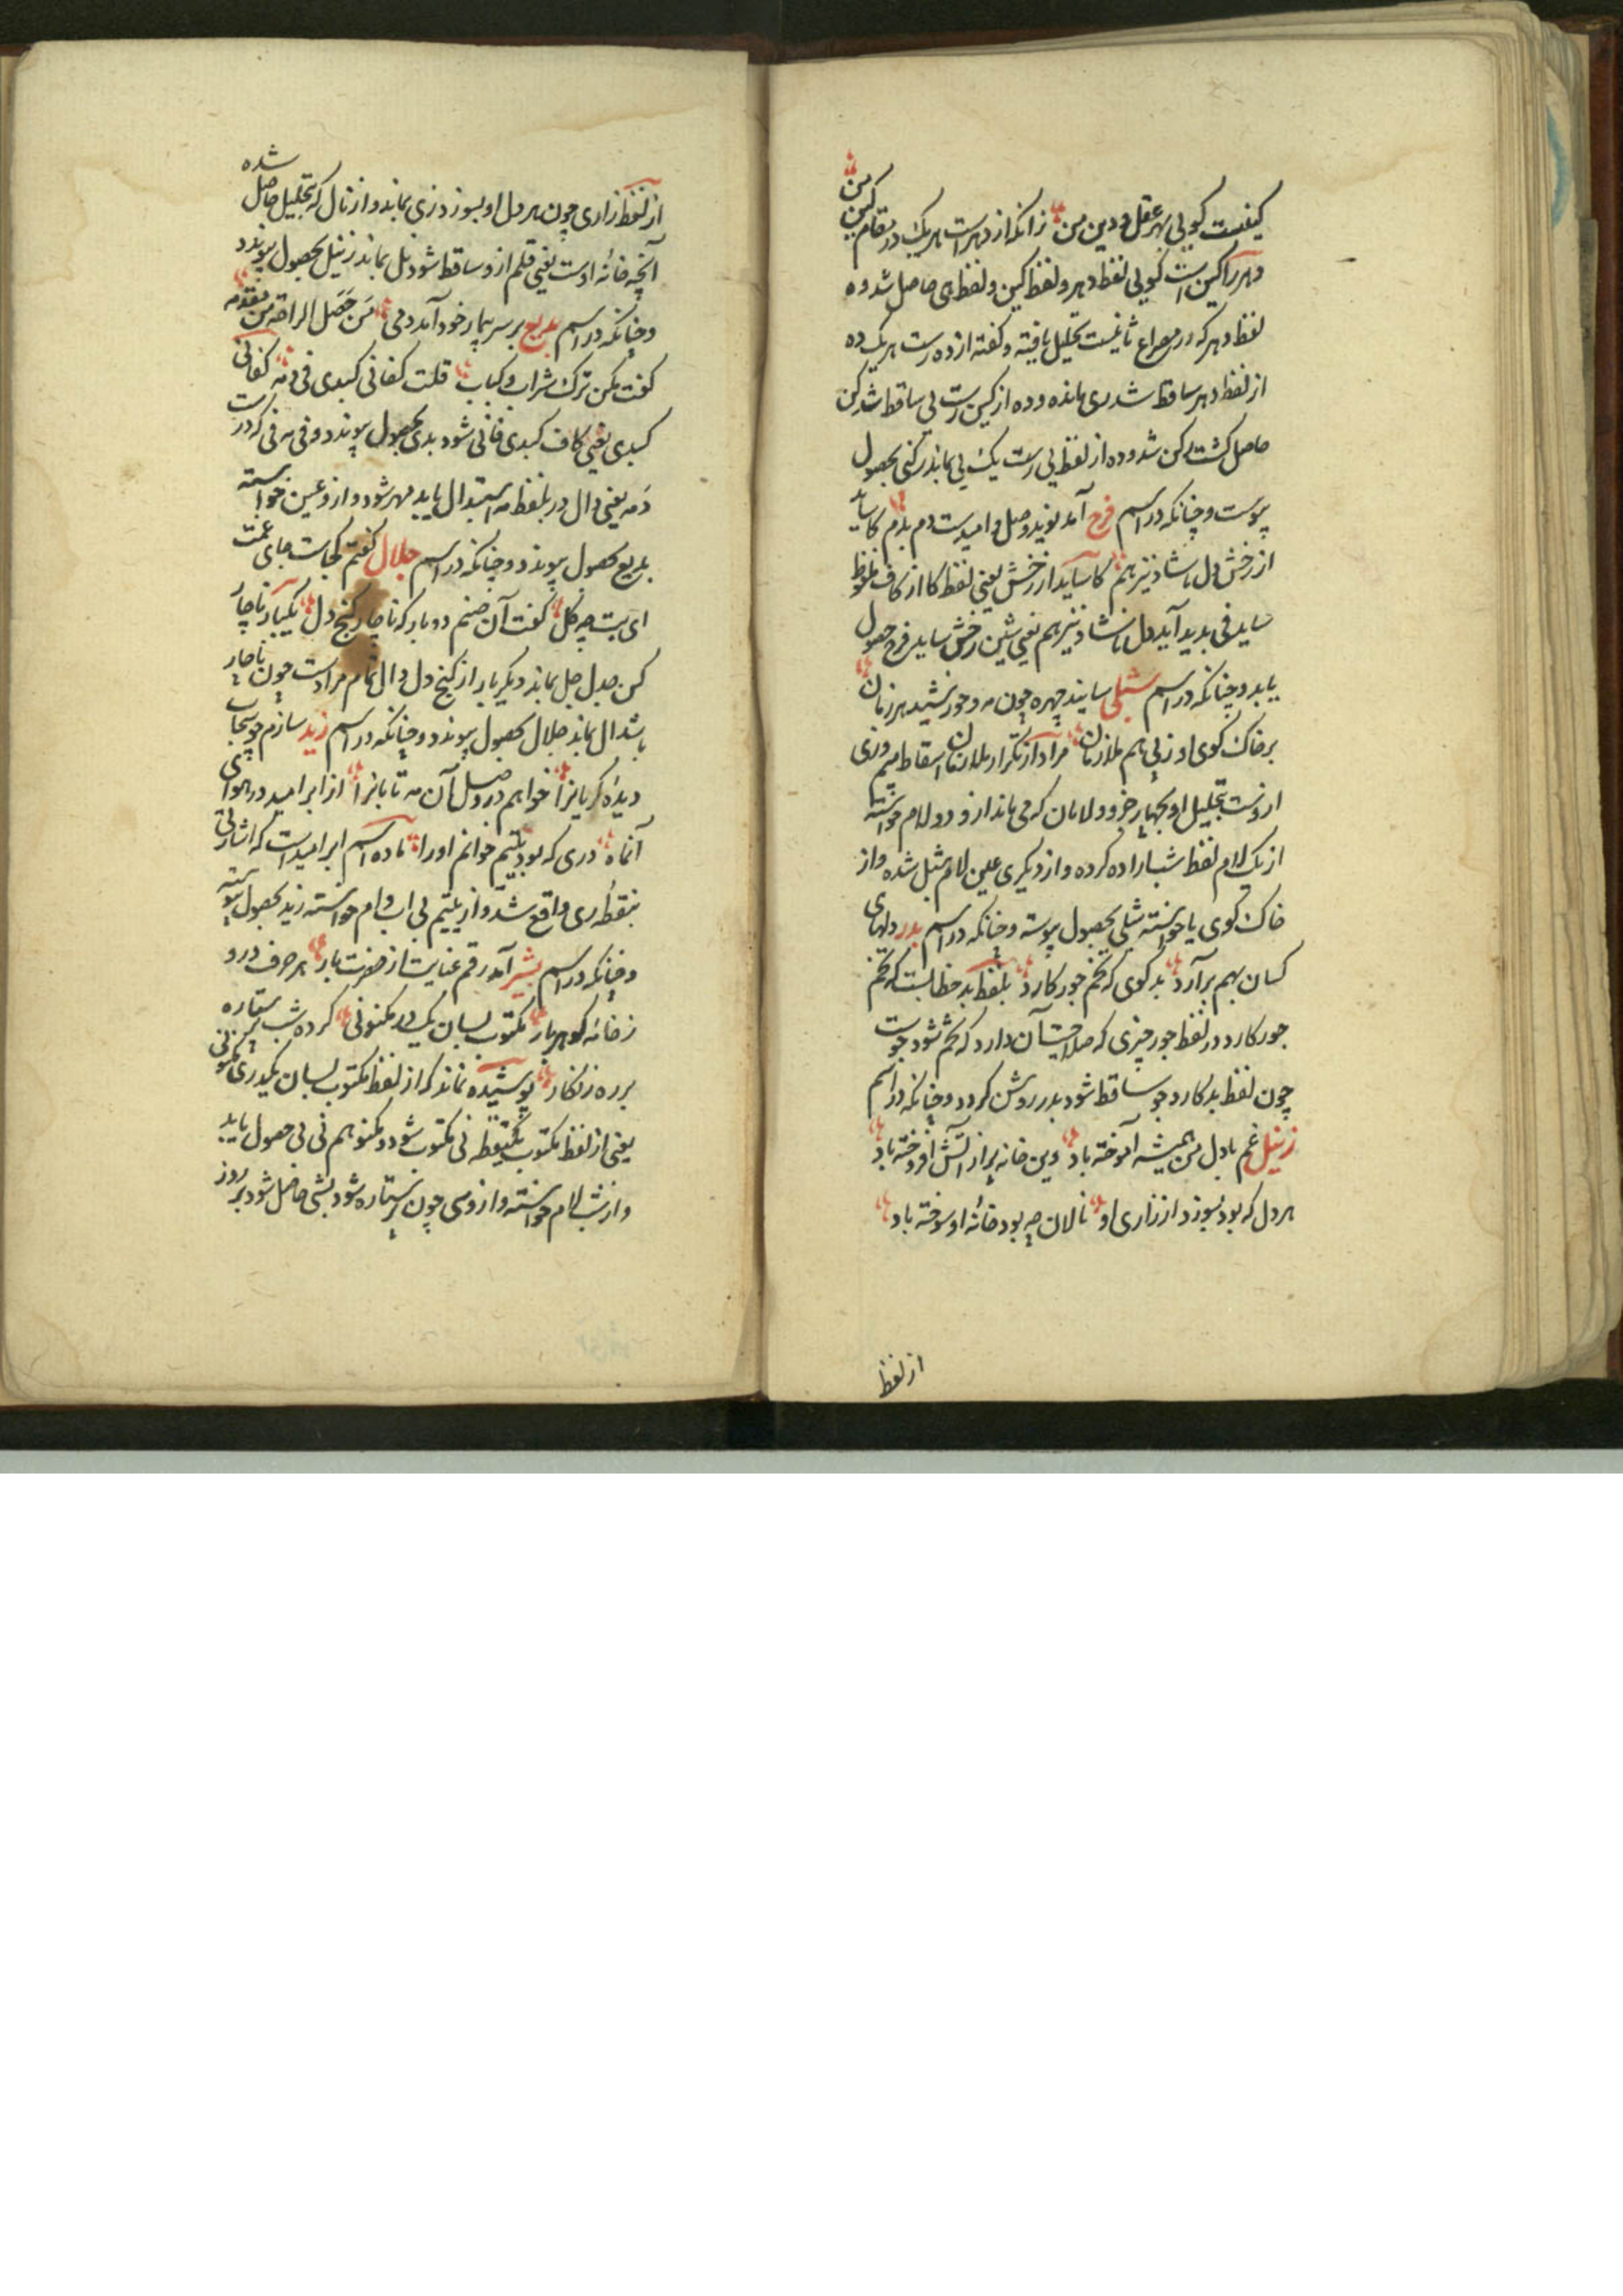 کینست گویی بهر عقل و دین من زانکه از دهر است هر یک در مقام کین من
دهر را کین است گویی لفظ دهر و لفظ کین و لفظ ی حاصل شد و ه
لفظ دهر که در مصراع ثانیست تحلیل یافته و گفته از ده رست هر یک ده
از لفظ دهر ساقط شد ری مانده و ده از کین رست بی ساقط شد کن
حاصل گشت کن شد و ده از لفظ بی رست یک بی بماند رکنی بحصول
پیوست و چنانکه در اسم فرخ آمد نوید وصل و امیدست دم بدم کاساید
از رخش دل ناشاد نیز هم کاساید از رخش یعنی لفظ کا از کاف ملفوظ
ساید فی بدید آید دل ناشاد نیز هم یعنی شین رخش ساید فرخ حصول
یابد و چنانکه در اسم شبلی سایند چهره چون مه و خورشید هر زمان
بر خاک کوی او ز پی هم ملازمان مراد از تکرار ملازمان اسقاط میم وزی
اروست تحلیل او بچهار جزو و لامان که می ماند از و دو لام خواسته
از یک لام لفظ شب اراده کرده و از دیگری عین لام مثل شده و از
خاک کوی یا خواسته شبلی بحصول پیوسته و چنانکه در اسم بدر دلهای
کسان بهم برآرد بد گوی که تخم جور کارد بلفظ بد خطابست که تخم
جور کارد در لفظ جور چیزی که صلاحیت آن دارد که تخم شود جوست
چون لفظ بد کارد جو ساقط شود بدر روشن گردد و چنانکه در اسم
زنیل غم با دل من همیشه آموخته باد وین خانه پر از آتش افروخته باد
هر دل که بود نسوزد از زاری او نالان چه بود خانه او سوخته باد
از لفظ
از لفظ زاری چون هر دل او بسوزد زی بماند و از نال که بتحلیل حاصل شده
آنچه خانه اوست یعنی قلم از و ساقط شود نل بماند زنیل بحصول پیوندد
و چنانکه در اسم بدیع بر سر بیمار خود آمد دمی من حصل الراحة من مقدمه
گفت بکن ترک شراب و کباب قلت کفانی کبدی فی دمه کفانی
کبدی یعنی کاف کبدی فانی شود بدی بحصول پیوندد و فی مه فی که در
دمه یعنی دال در بلفظ مه استبدال یابد مهر شود و از و عین خواسته
بدیع بحصول پیوندد و چنانکه در اسم جلال گفتم کجاست جای غمت
ای بت چو گل گفت آن صنم دوبار که ناچار کنج دل یکبار ناچار
کن جدل جل بماند دیگر بار از کنج دل دال تمام مرادست چون ناچار
باشد ال بماند جلال بحصول پیوندد و چنانکه در اسم زید سازم چو سحاب
دیده گریانرا خواهم در وصل آن مه تابانرا از ابر امید در هوای
آنماه دری که بود یتیم خوانم او را ماده اسم ابر امیدست که اشارتی
بنقطه ری واقع شد و از یتیم بی اب و ام خواسته زید بحصول پیوسته
و چنانکه در اسم بشیر آمد رقم عنایت از حضرت یار هر حرف درو
ز خانه گوهر بار مکتوب بسان یک در مکنونی کرده شب پر ستاره
بر ره زنگار پوشیده نماند که از لفظ مکتوب بسان یکدر مکنونی
یعنی از لفظ مکتوب یکنقطه نی مکتوب شود و مکنو هم نی بی حصول یابد
و از شب لام خواسته و از و سی چون پر ستاره شود بشی حاصل شود بر روز